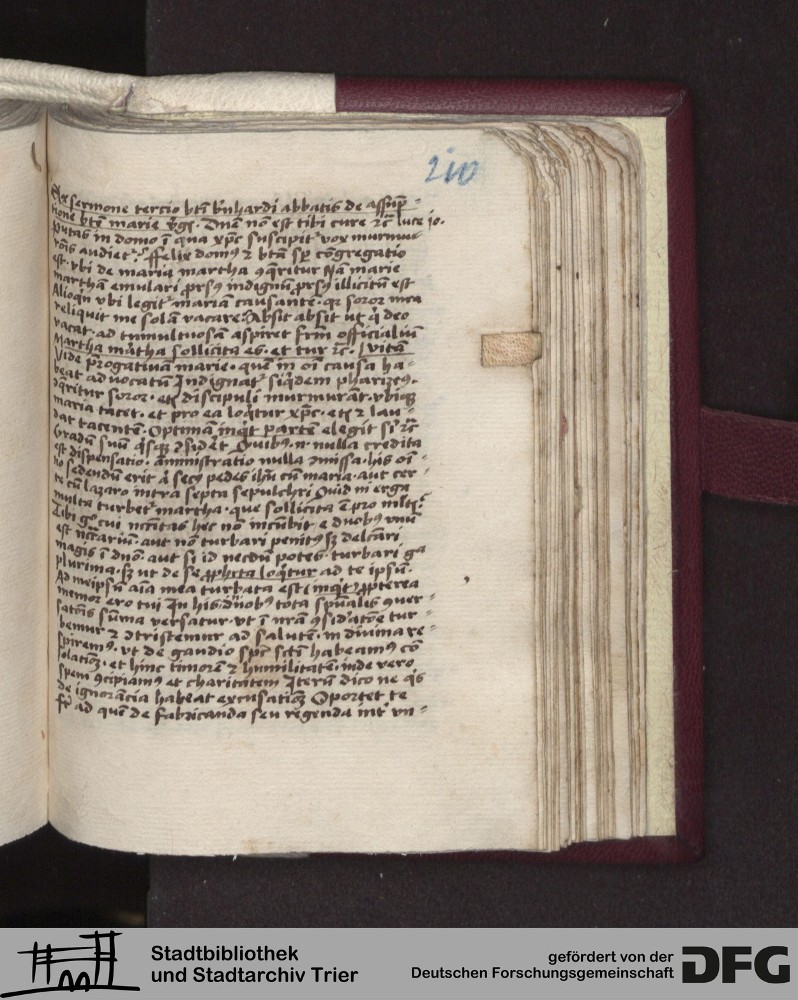 210
Ex sermone tercio bti b'nhardi abbatis de assūp-
tione bte marie v'gīs. Dne nō est tibi cure zc luce io.
putas in domo ī qua xpc suscipit' vox murmu-
rōis audiet'. Felix dom9 z btā sp cōgregatio
est. vbi de maria martha 9q̄ritur Nā marie
marthā emulari prs9 indignū prs9 illicitū est
Alioq'n vbi legit' mariā causante. qr soror mea
reliquit me solā vacare. Absit absit ut q deo
vacat. ad tumultuosā aspiret frm̄ officialiū
Martha m'tha sollicita es. et tur zc. vitā
Vide p'rogativā marie. quē in oī causa ha-
beat advocatū Indignat' siq'dem pharize9.
9q̄ritur soror. etī discipuli murmurāt. vbiq3
maria tacet. et pro ea loq'tur xpc. etī z lau-
dat tacentē. Optimā inq't partē elegit sī zc
Gradū suū q'sq3 9sid'et Quib9. n. nulla credita
est dispensatio. amministratio nulla 9missa. his oī-
no sedendū erit a sec9 pedes ihū cū maria. aut cer-
te cū lazaro intra septa sepulchri Quid nī erga
multa turbet' martha. que sollicita ē pro mlt'
Tibi g° cui ncc̄itas hec nō incūbit e duob9 unū
est nccāriū. aut nō turbari penit9 s3 delc̄ari
magis ī dno. aut si id necdū potes. turbari ga
plurima. s3 ut de se ppheta loq'tur ad te ipsū.
Ad meipsū aīa mea turbata est inq't ppterea
memor ero tui In his duob9 tota spūalis 9uer-
satōis sūma versatur. vt ī nrā 9sid'atōe tur-
bemur z 9tristemur ad salutē. in divina re-
spirem9. vt de gaudio spc sctī habeam9 cō
solatiōē. et hinc timorē z humilitatē. inde vero
spem 9cipiam9 et charitatem Iterū dico ne q's
de ignorācia habeat excusatiōē Oportet te
fr ad quē de fabricanda seu regenda int' un-
Stadtbibliothek
und Stadtarchiv Trier
gefördert von der
Deutschen Forschungsgemeinschaft
DFG